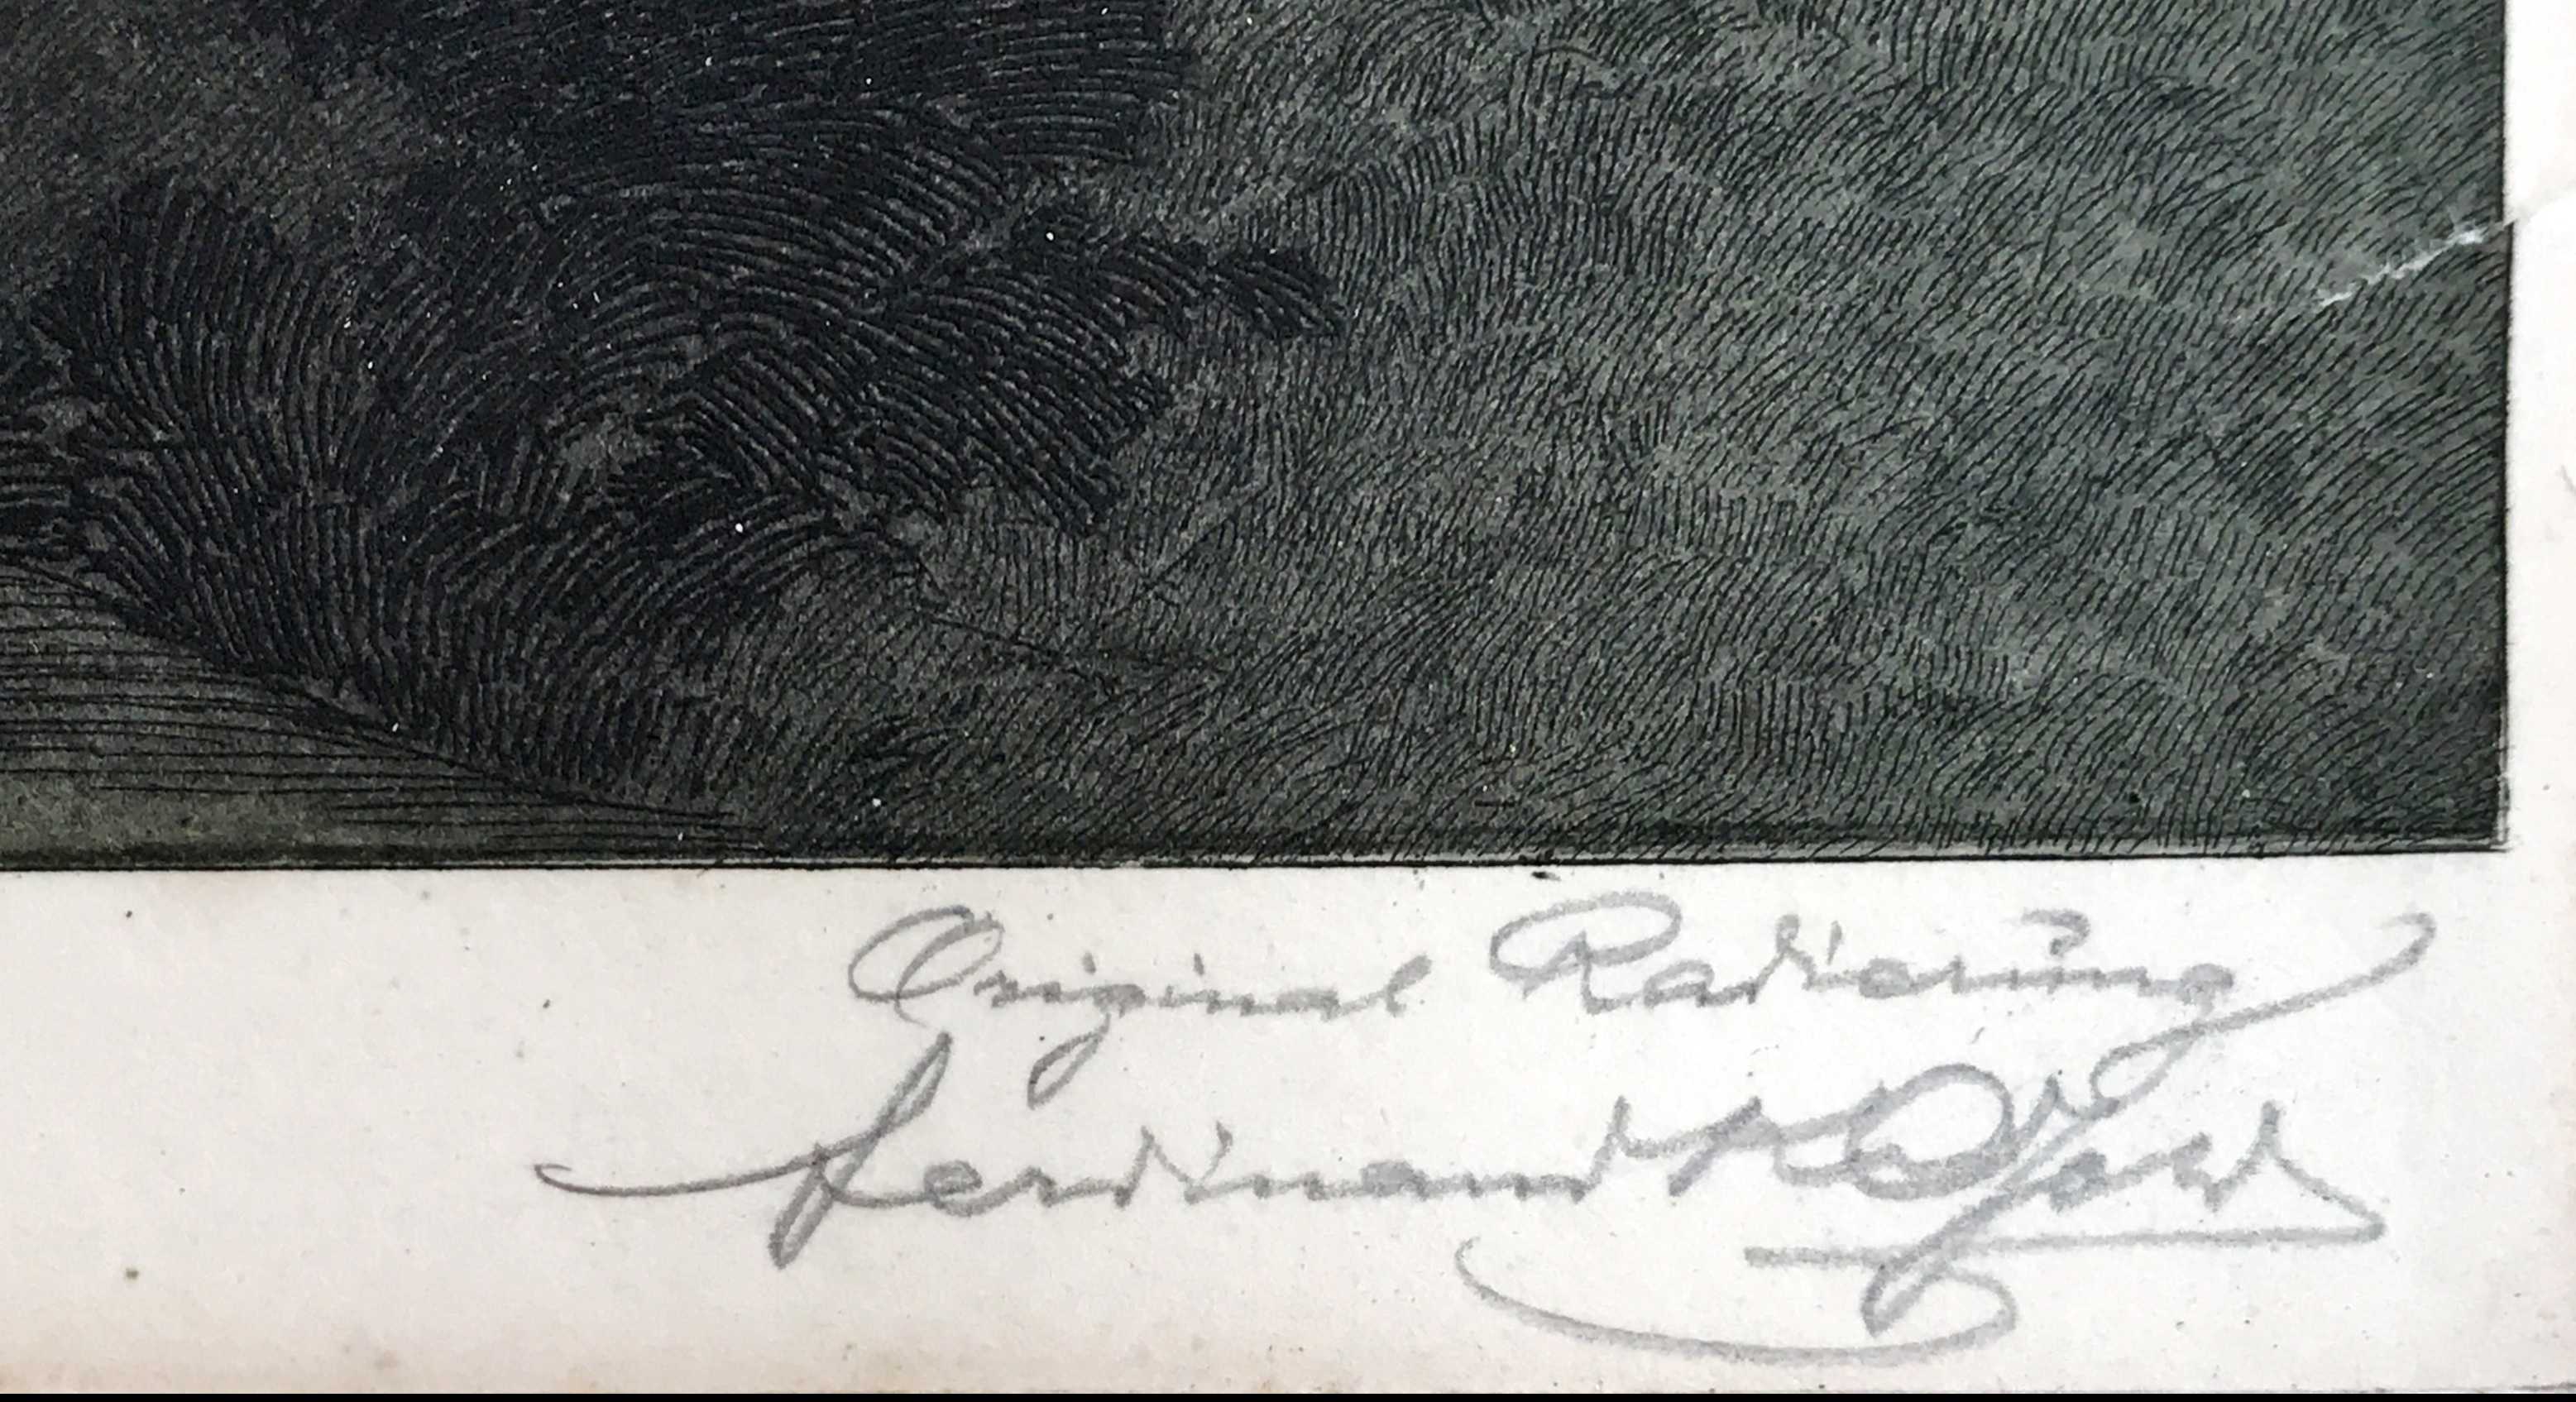 Original Radierung
Ferdinand